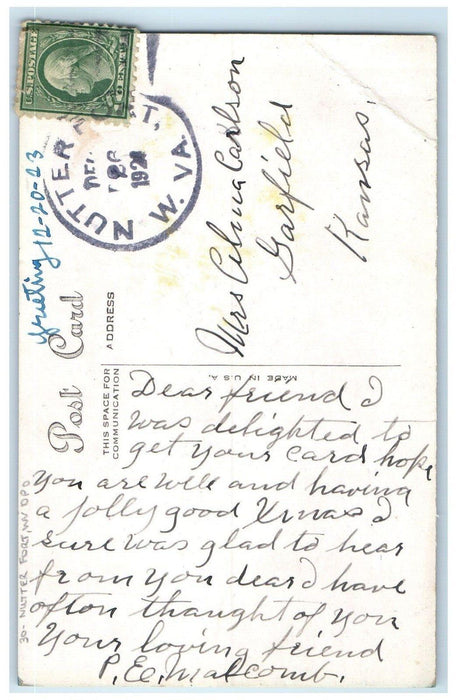 U.S. POSTAGE
1 CENT 1
NUTTER FORT,
DEC
1920
W. VA.
Greeting 12-20-23
Post Card
ADDRESS
Mrs Alma Carlson
Garfield
Kansas.
THIS SPACE FOR
COMMUNICATION
MADE IN U.S.A.
Dear friend I
was delighted to
get your card hope
you are well and having
a jolly good Xmas I
sure was glad to hear
from you dear I have
often thought of you
Your loving friend
P. E. Malcomb.
30- NUTTER FORT, WV DPO